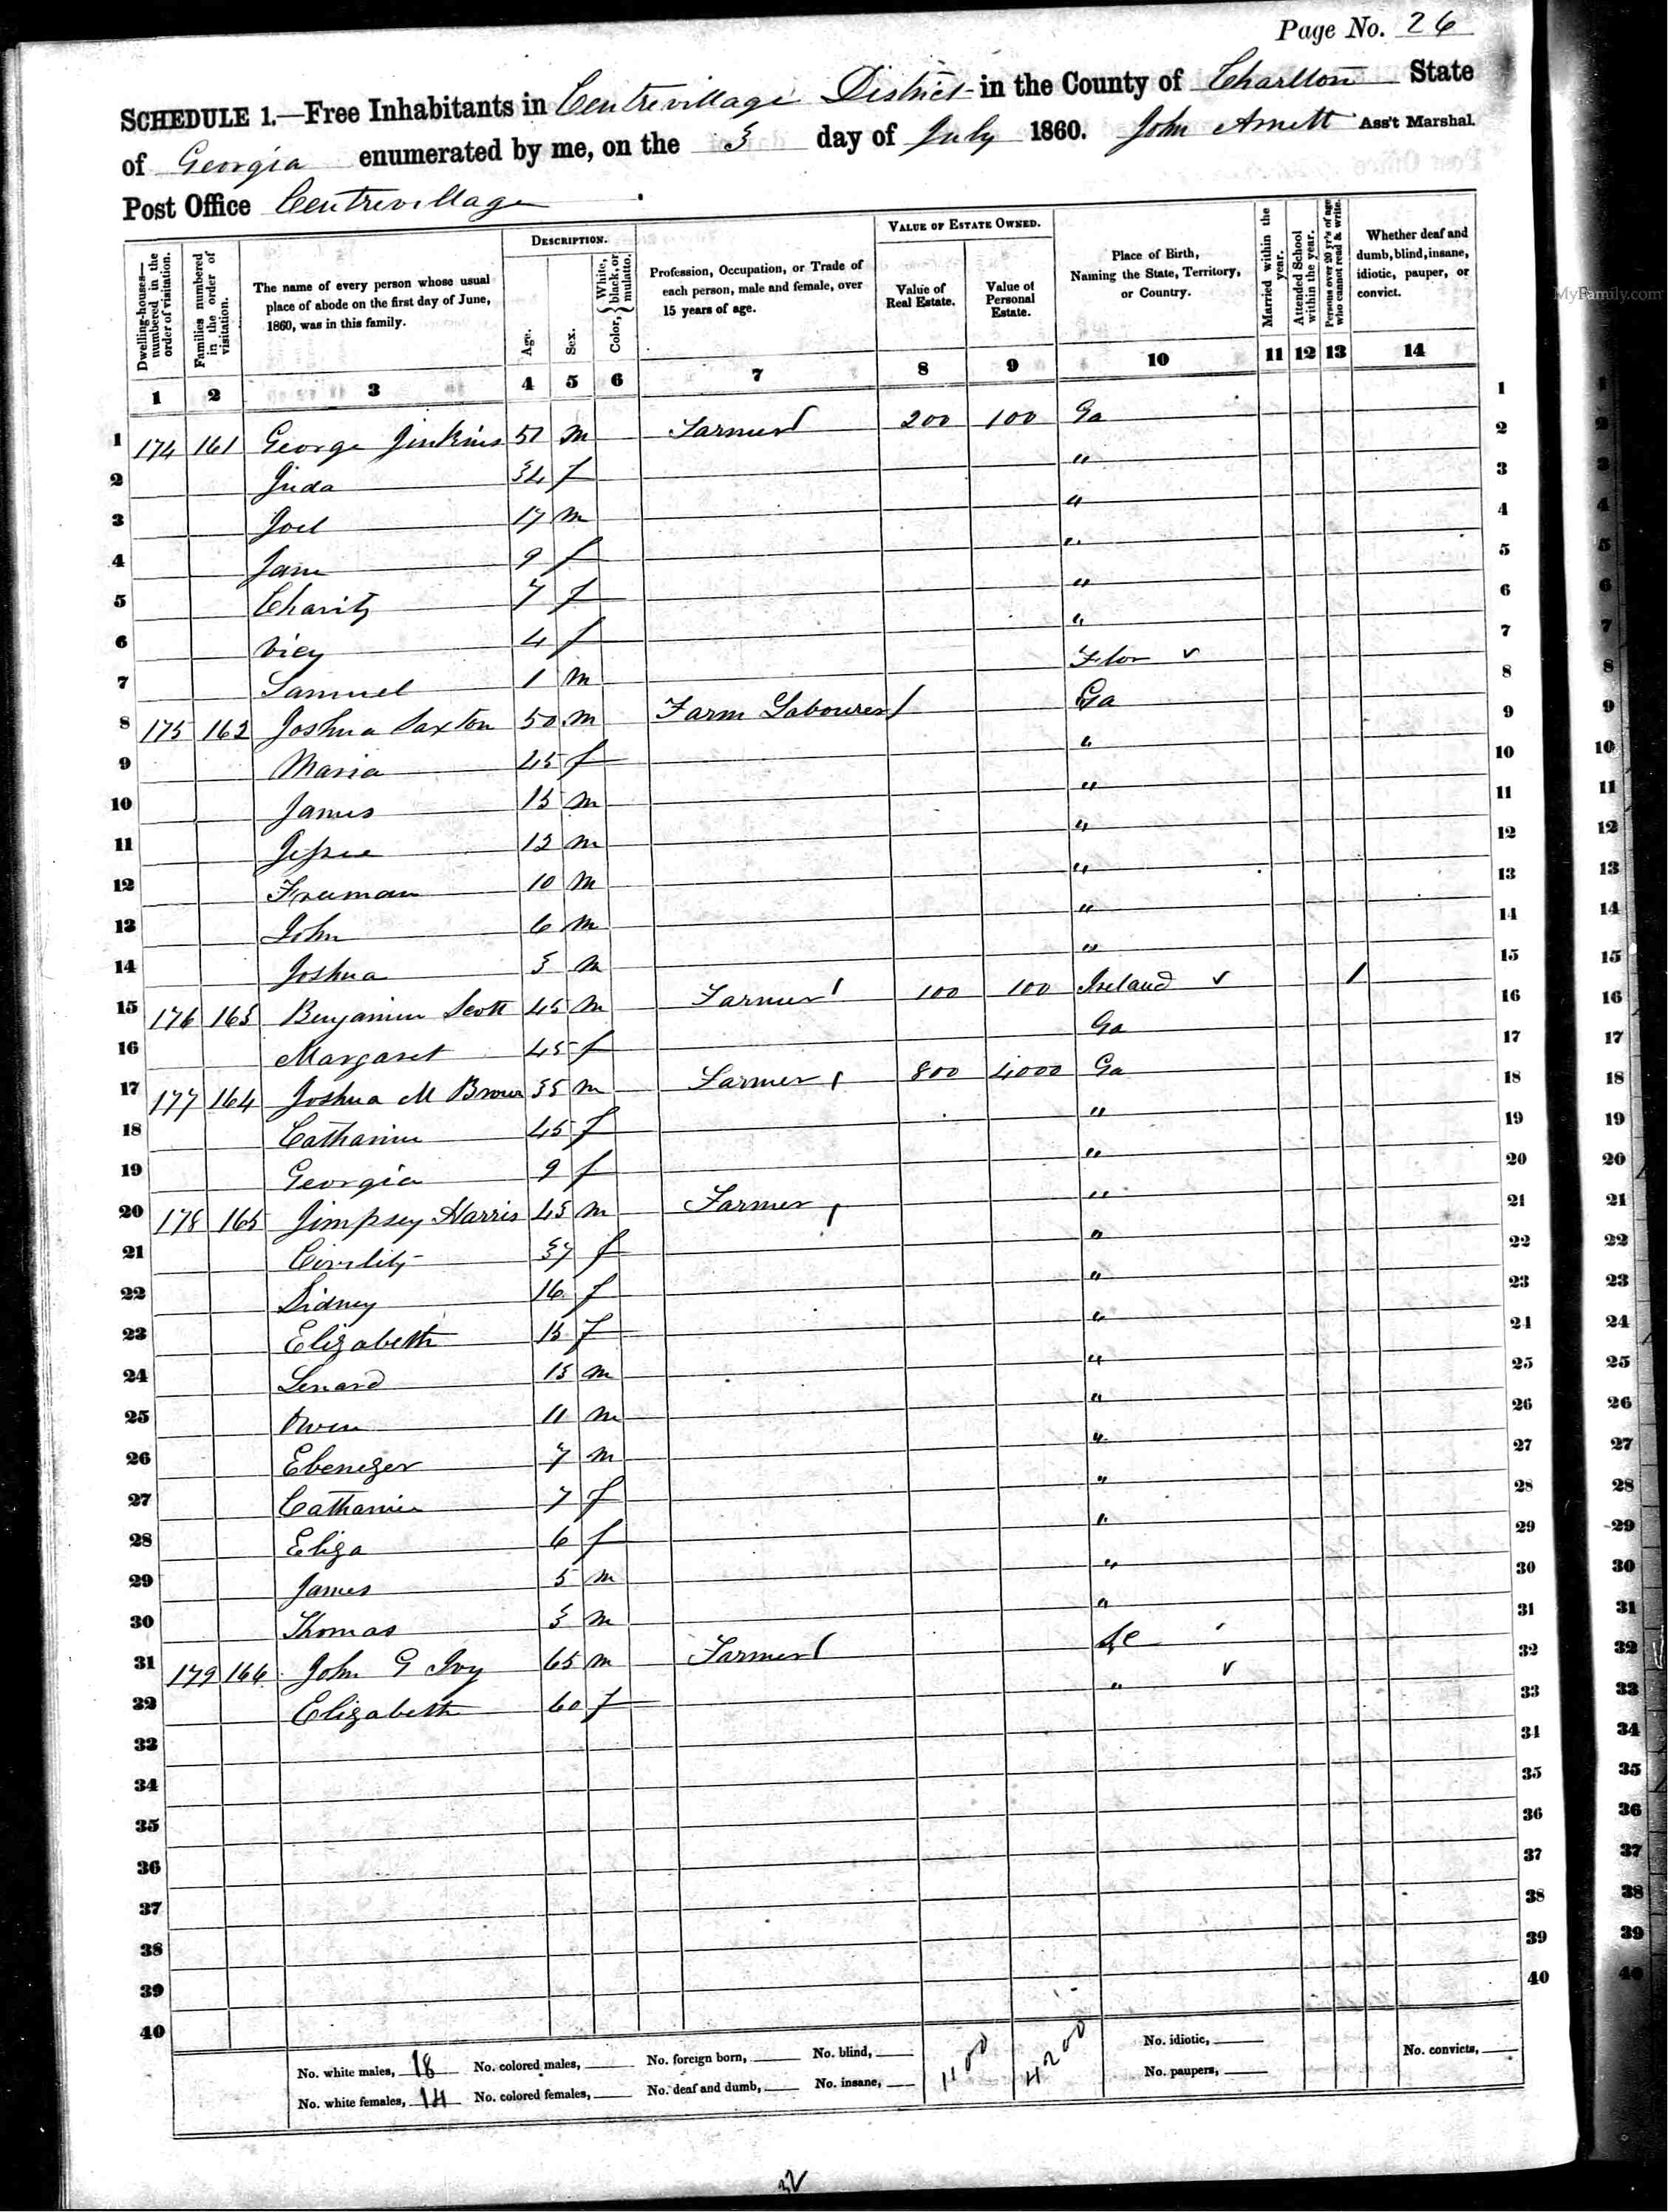 Page No. 26
SCHEDULE 1.—Free Inhabitants in Centrevillage District in the County of Charlton State
of Georgia enumerated by me, on the 3 day of July 1860. John Arnett Ass't Marshal.
Post Office Centrevillage
Dwelling-houses—numbered in the order of visitation.
Families numbered in the order of visitation.
The name of every person whose usual place of abode on the first day of June, 1860, was in this family.
DESCRIPTION.
Age.
Sex.
Color, { White, black, or mulatto.
Profession, Occupation, or Trade of each person, male and female, over 15 years of age.
VALUE OF ESTATE OWNED.
Value of Real Estate.
Value of Personal Estate.
Place of Birth, Naming the State, Territory, or Country.
Married within the year.
Attended School within the year.
Persons over 20 yr's of age who cannot read & write.
Whether deaf and dumb, blind, insane, idiotic, pauper, or convict.
MyFamily.com
1 2 3 4 5 6 7 8 9 10 11 12 13 14
1 174 161 George Jinkins 51 m Farmer 200 100 Ga 1
2 Juda 34 f " 2
3 Joel 17 m " 3
4 Jane 9 f " 4
5 Charity 7 f " 5
6 Vicy 4 f " 6
7 Samuel 1 m Flor 7
8 175 162 Joshua Saxton 50 m Farm Labourer Ga 8
9 Maria 45 f " 9
10 James 15 m " 10
11 Jessee 12 m " 11
12 Freeman 10 m " 12
13 John 6 m " 13
14 Joshua 3 m " 14
15 176 163 Benjamin Scott 45 m Farmer 100 100 Ireland 1 15
16 Margaret 45 f Ga 16
17 177 164 Joshua M Brown 35 m Farmer 800 4000 Ga 17
18 Catharine 45 f " 18
19 Georgia 9 f " 19
20 178 165 Jimpsey Harris 43 m Farmer " 20
21 Civility 37 f " 21
22 Sidney 16 f " 22
23 Elizabeth 15 f " 23
24 Lenard 13 m " 24
25 Owen 11 m " 25
26 Ebenezer 7 m " 26
27 Catharine 7 f " 27
28 Eliza 6 f " 28
29 James 5 m " 29
30 Thomas 3 m " 30
31 179 166 John G Ivy 65 m Farmer SC 31
32 Elizabeth 60 f " 32
33 33
34 34
35 35
36 36
37 37
38 38
39 39
40 40
No. white males, 18 No. colored males, No. foreign born, No. blind, 1100 4200 No. idiotic, No. convicts,
No. white females, 14 No. colored females, No. deaf and dumb, No. insane, No. paupers,
32